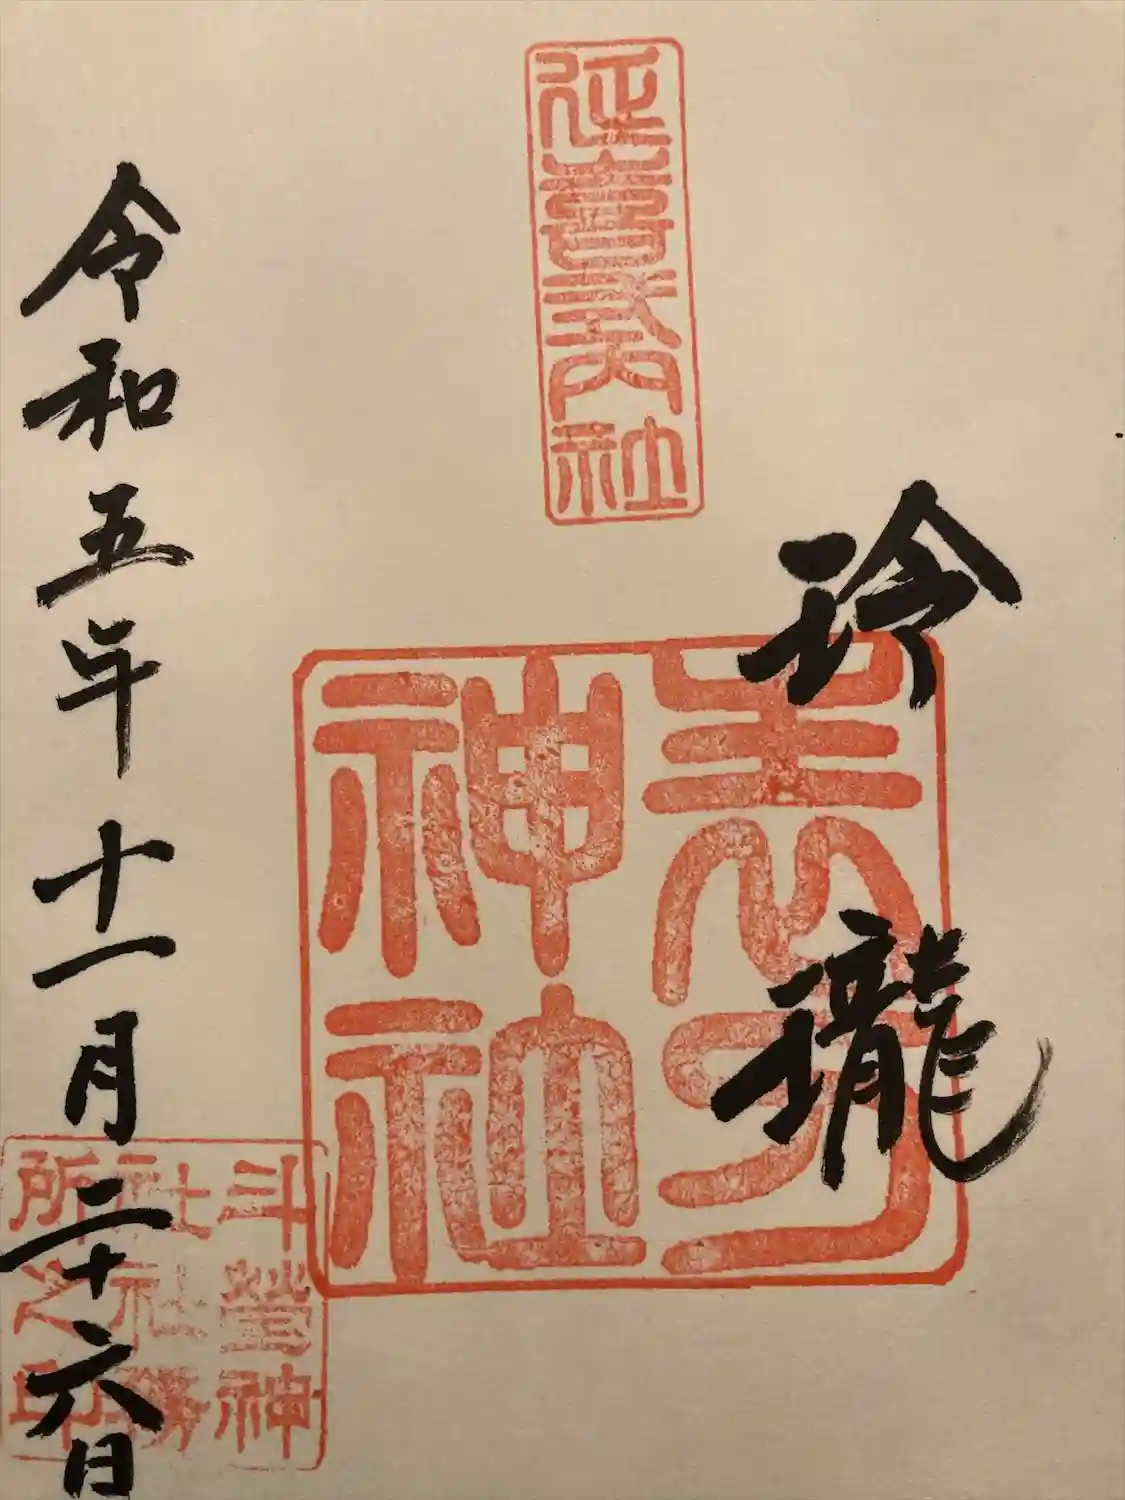 玲瓏
延喜式内社
神社
令和五年十一月二十六日
斗營神
社社務
所之印